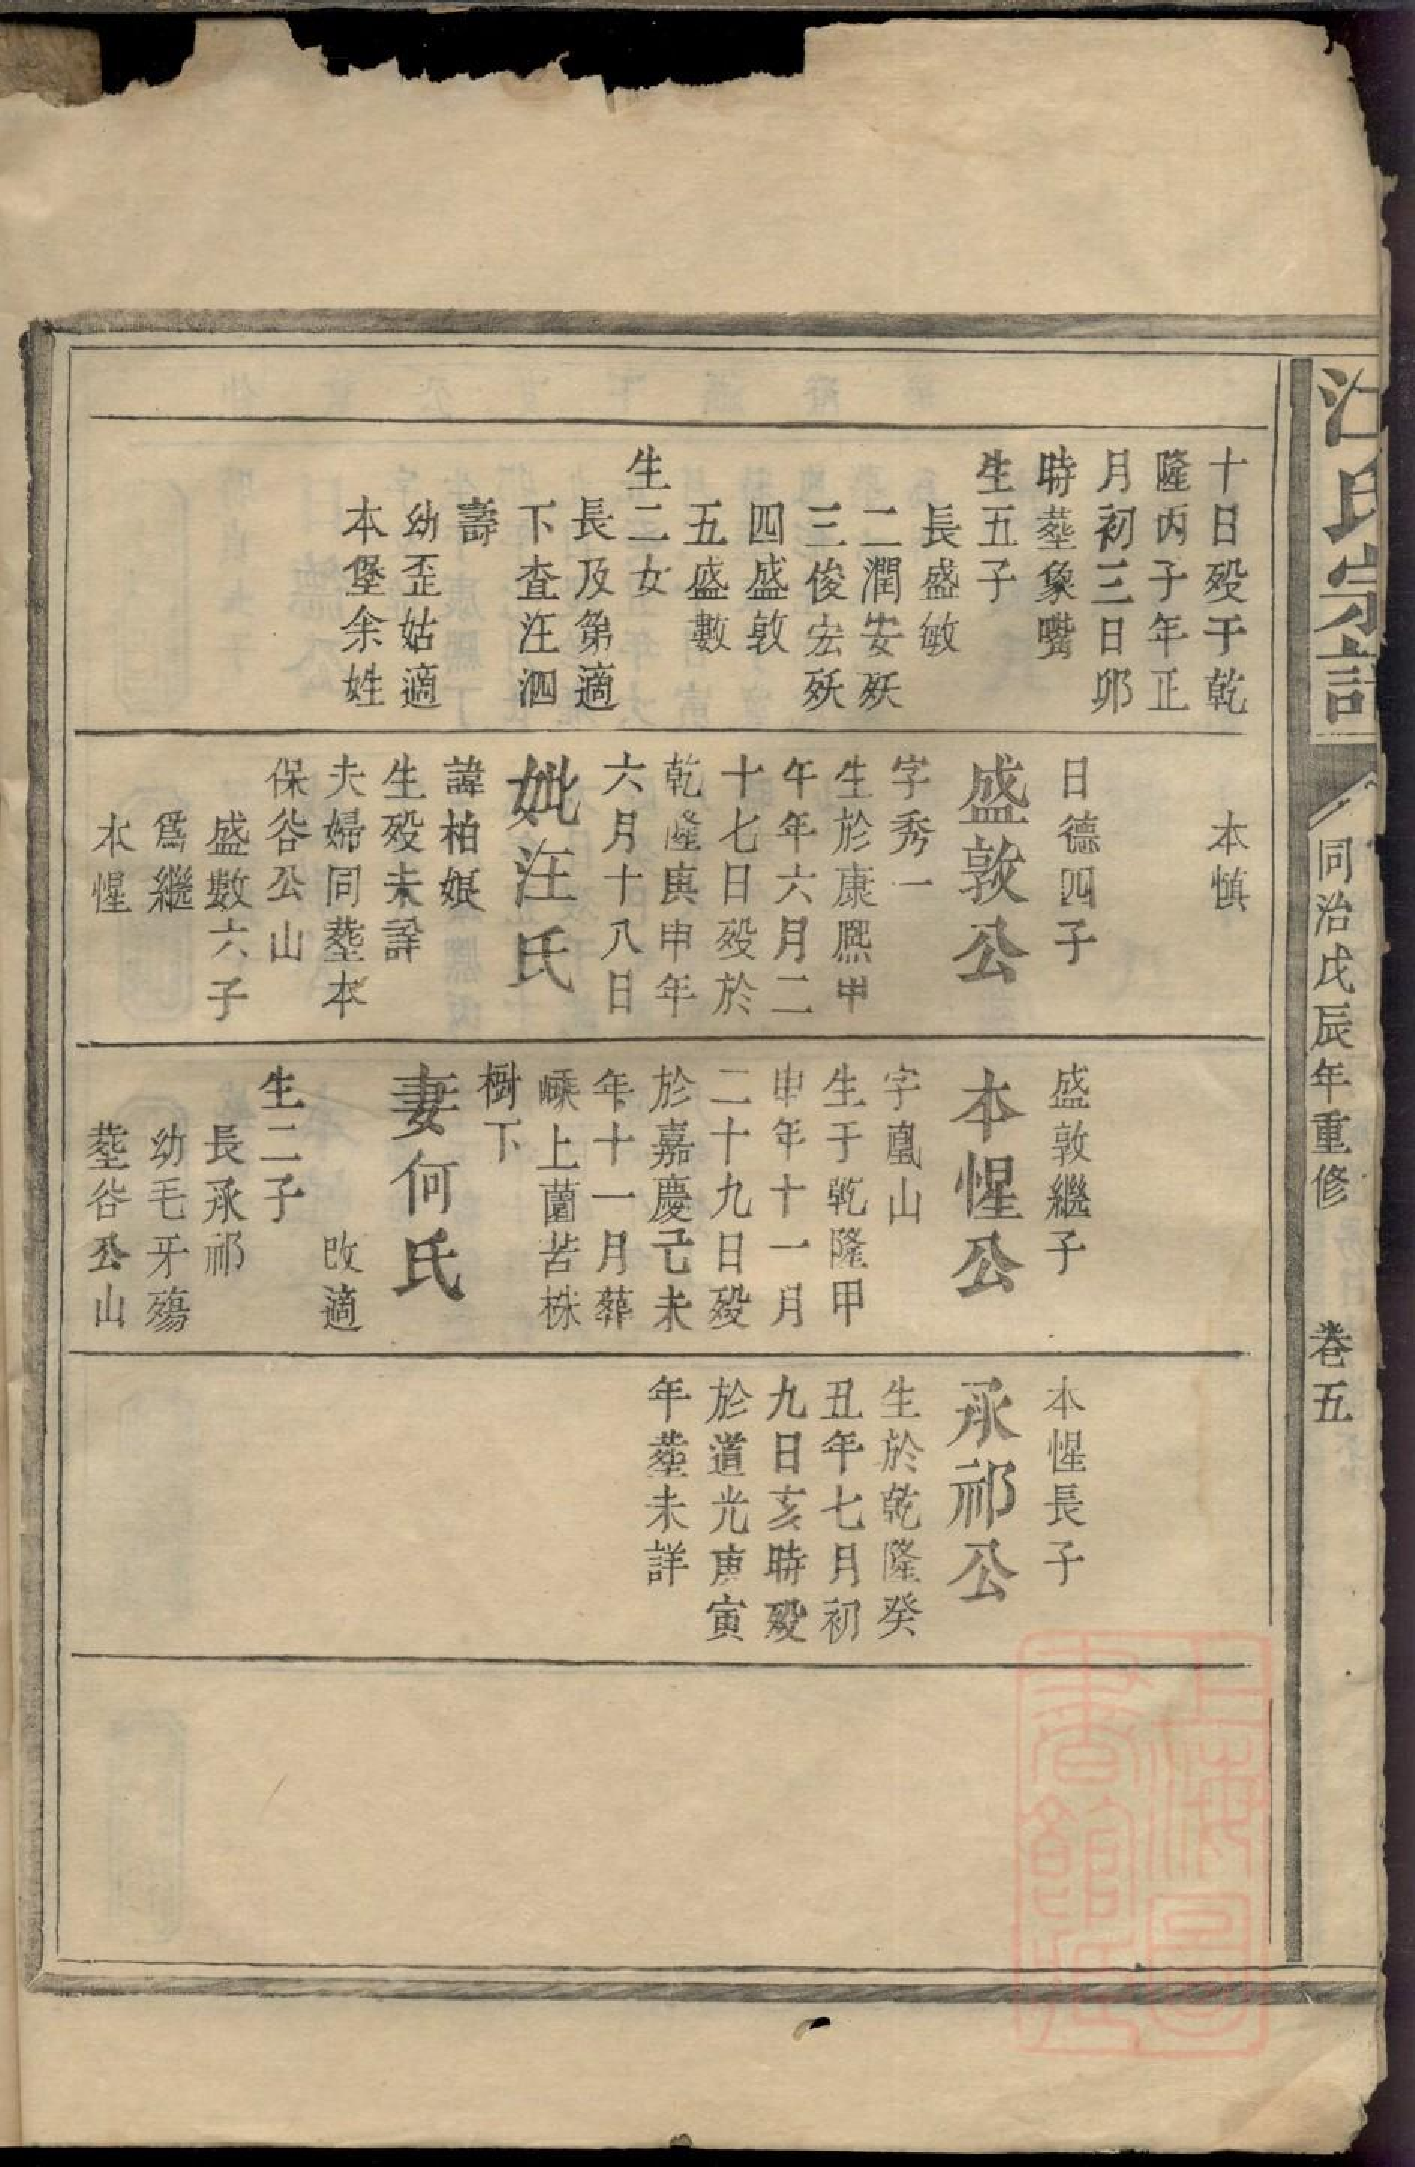 江氏宗譜
同治戊辰年重修
卷五
十日殁于乾
隆丙子年正
月初三日卯
時塟象嘴
生五子
長盛敏
二潤安殀
三俊宏殀
四盛敦
五盛數
生二女
長及第適
下查汪泗
壽
幼歪姑適
本堡余姓
本慎
日德四子
盛敦公
字秀一
生於康熙甲
午年六月二
十七日殁於
乾隆庚申年
六月十八日
妣汪氏
諱柏娘
生殁未詳
夫婦同塟本
保峇公山
盛數六子
爲繼
本惺
盛敦繼子
本惺公
字凰山
生于乾隆甲
申年十一月
二十九日殁
於嘉慶己未
年十一月葬
嵊上薗苦株
樹下
妻何氏
改適
生二子
長承祁
幼毛牙殤
塟峇公山
本惺長子
承祁公
生於乾隆癸
丑年七月初
九日亥時殁
於道光庚寅
年塟未詳
上海圖
書館藏